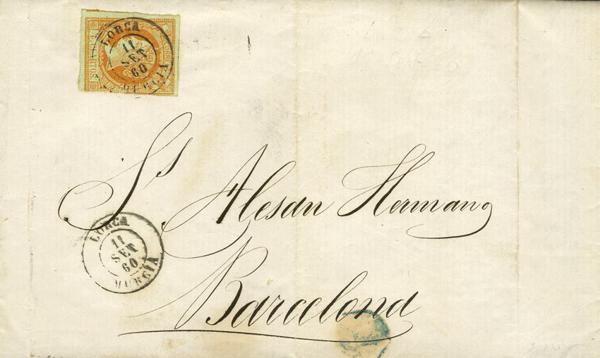 LORCA
11
SET
60
MURCIA
S.s Alesan Hermano
LORCA
11
SET
60
MURCIA
Barcelona